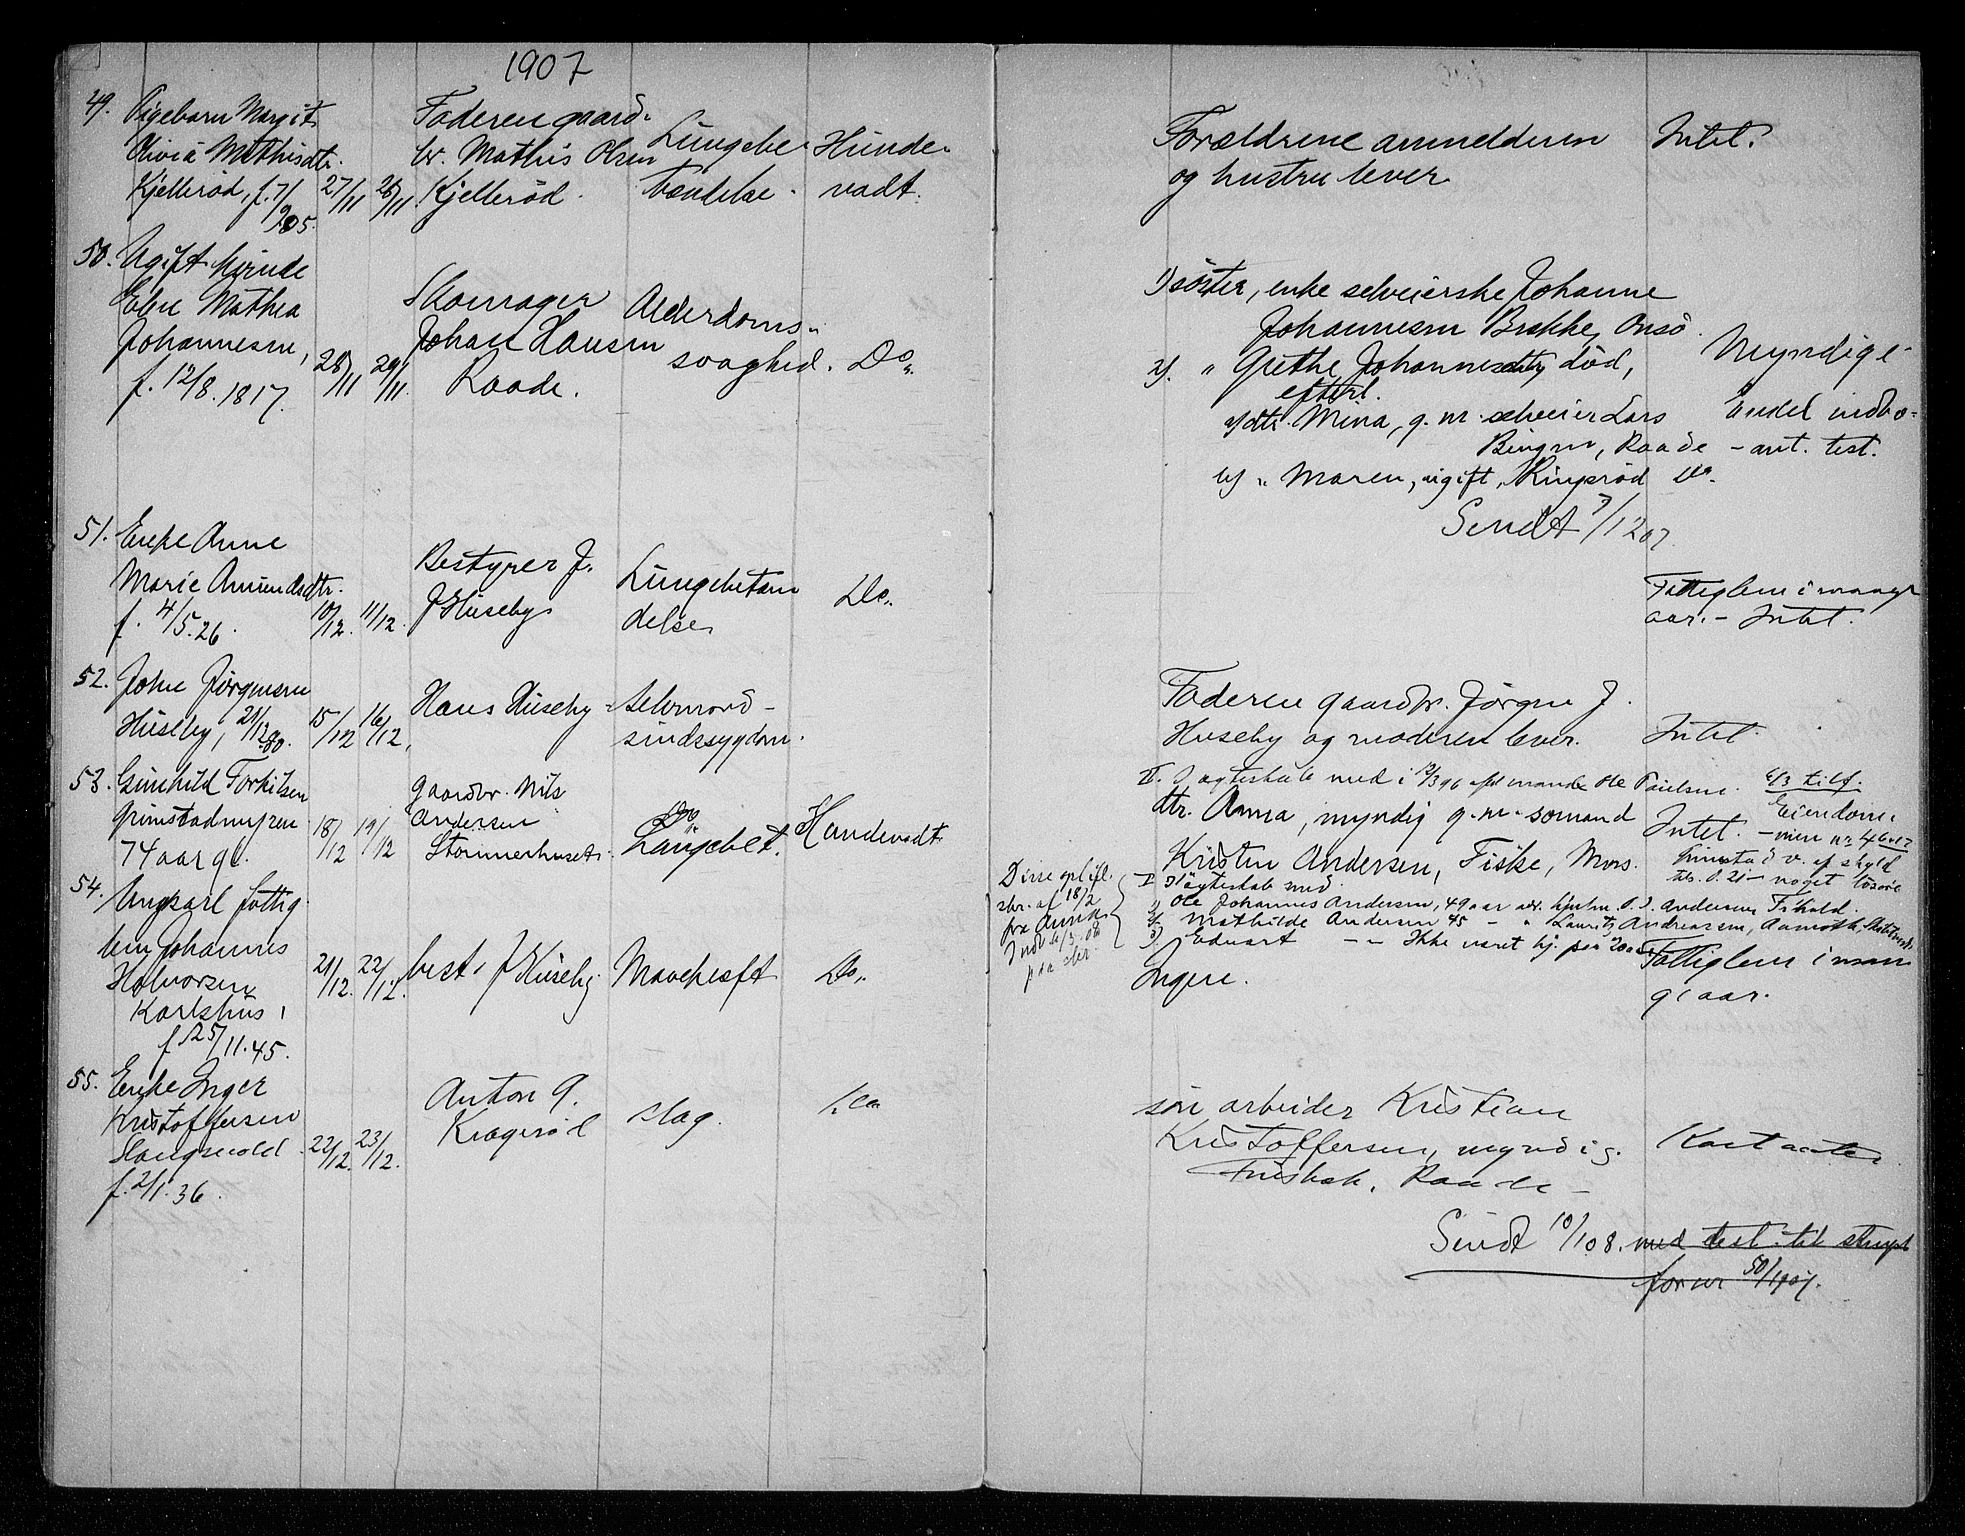 1907
49. Pigebarn Margit
Olivia Mathisdtr.
Kjellerød, f. 7/9 05. 27/11 28/11
Faderen gaard-
br. Mathis Olsen
Kjellerød.
Lungebe-
tændelse.
Hunde-
vadt.
Forældrene anmelderen
og hustru lever
Intet.
50. Ugift kvinde
Elen Mathea
Johannesen,
f. 12/8. 1817. 28/11 29/11
Skomager
Johan Hansen
Raade.
Alderdoms-
svaghed.
Do.
1) søster, enke selveierske Johanne
Johannesen Brekke, Onsø.
2) " Grethe Johannesdtr, død,
efterl.
a) dtr. Mina, g. m. selveier Lars
Bingen, Raade
b) " Maren, ugift, Ringsrød
Sendt 7/12 07.
Myndige
Endel indbo-
- ant. test.
Do.
51. Enke Anne
Marie Amundsdtr.
f. 4/5. 26. 10/12. 11/12.
Bestyrer J.
J. Huseby
Lungebetæn
delse
Do.
Fattiglem i mange
aar. - Intet.
52. John Jørgensen
Huseby, 21/12 80. 15/12 16/12.
Hans Huseby
Selvmord -
sindssygdom.
Faderen gaardbr. Jørgen J.
Huseby og moderen lever.
Intet.
53. Gunhild Torkilsen
Grimstadmyren
74 aar gl. 18/12 19/12
Gaardbr. Nils
Andersen
Stommerhuset.
Do.
Lungebet.
Hundevadt
II. I ægteskab med i 12/3 96 afd mand Ole Paulsen.
dtr. Anna, myndig g. m. sømand
Kristen Andersen, Fiske, Mors.
Intet.
6/3 tilf.
Eiendom.
Grimstad v. af skyld
- noget løsøre
Disse opl ifl.
skr. af 18/2
fra
Indb. 4/3. 08
paa skr.
I Iægteskab med
1) Ole Johannes Andersen, 49 aar
2) Mathilde Andersen 45 - " Lauritz Andreassen,
3) Edvart - - Ikke været hj. paa 20 aar
54. Ungkarl fattig-
lem Johannes
Halvorsen
Karlshus,
f. 25/11. 45. 21/12. 22/12.
best. J. Huseby
Mavekræft
Do.
Ingen.
Fattiglem i man
ge aar.
55. Enke Inger
Kristoffersen
Slangsvold
f. 2/1. 36. 22/12. 23/12.
Anton A.
Kragerød
slag.
Do.
søn arbeider Kristian
Kristoffersen, myndig.
Frisbæk, Raade -
Sendt 10/1 08. med test. til
for nr 50/1907.